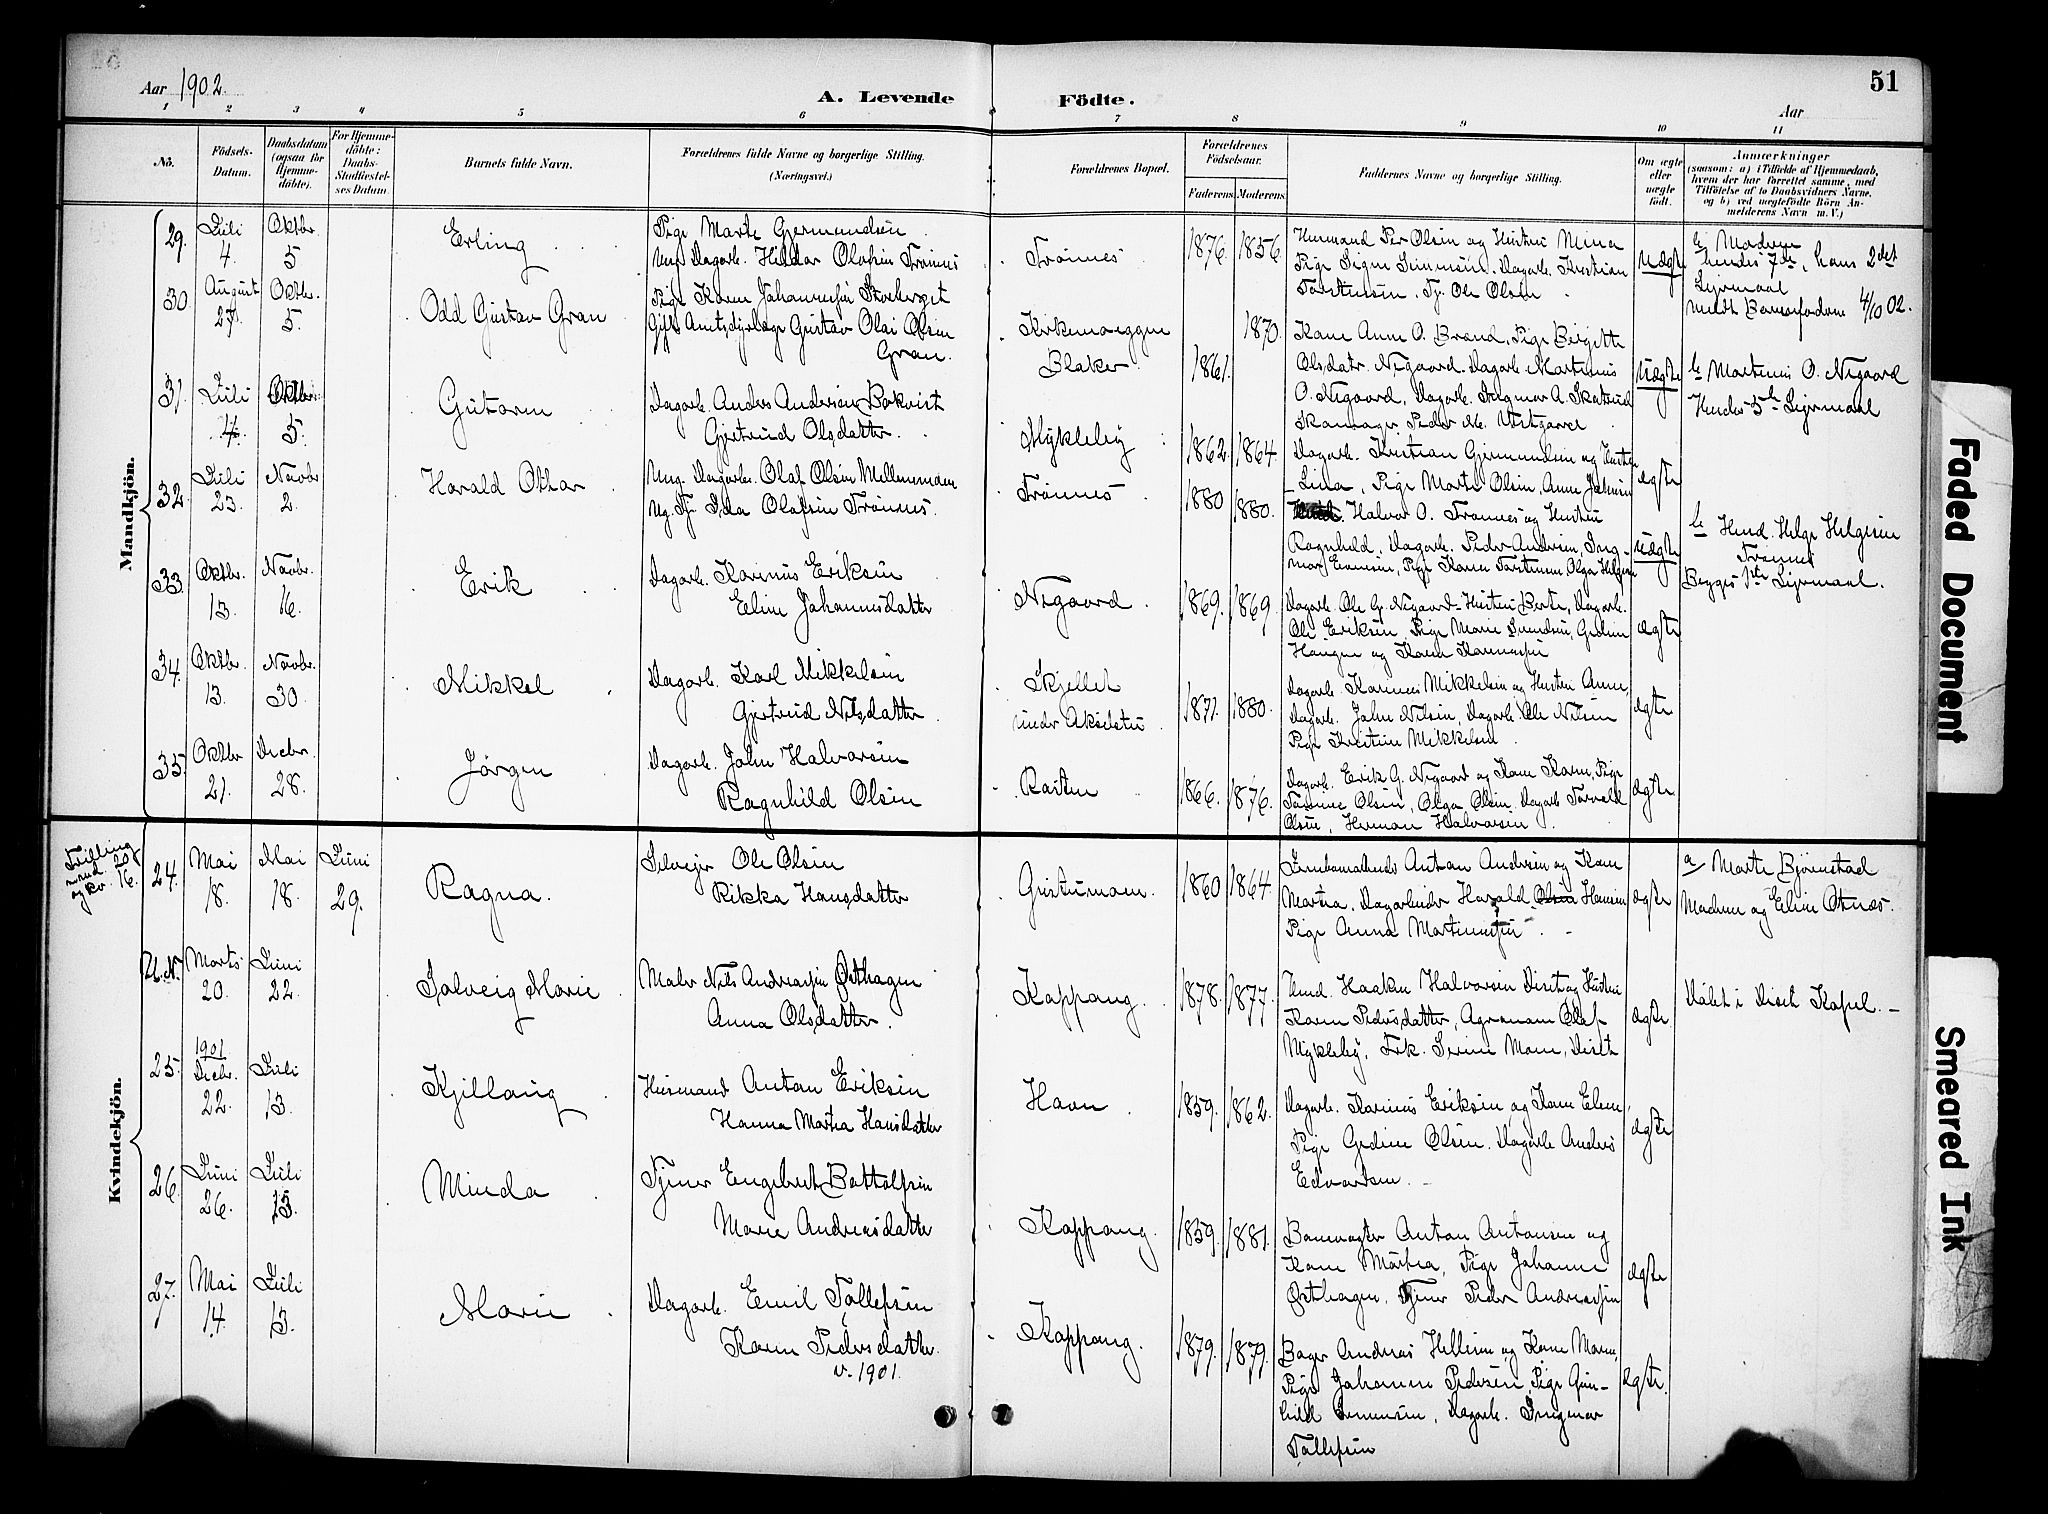 Aar 1902.
A. Levende Födte.
Aar
51
1 2 3 4 5 6 7 8 9 10 11
No.
Födsels-Datum.
Daabsdatum (ogsaa for Hjemme-döbte).
For Hjemme-döbte: Daabs-Stadfæstel-ses Datum.
Barnets fulde Navn.
Forældrenes fulde Navne og borgerlige Stilling. (Næringsvei.)
Forældrenes Bopæl.
Forældrenes Födselsaar.
Faderens Moderens
Faddernes Navne og borgerlige Stilling.
Om ægte eller uægte födt.
Anmærkninger
(saasom: a) i Tilfælde af Hjemmedaab, hvem der har forrettet samme, med Tilföielse af to Daabsvidners Navne, og b) ved uægtefödte Börn An-melderens Navn m. V.)
Mandkjön.
29. Juli 4. Oktbr. 5
Erling
Pige Marte Gjermundsen
Ung. Dagarb. Hildar Olafsen Trönnes
Trönnes
1876. 1856.
Husmand Per Olsen og Hustru Mina
Pige Signe Simensen. Dagarb. Kristian
Torstensen. Tj. Ole Olsen
uægte
b, Moderen
hendes 7de, hans 2det
Leirmaal
30. August 27. Oktbr. 5.
Odd Gustav Gran
Pige Karen Johannesen
Gift Gustav Olai Olsen
Gran.
Blaker
1861. 1870.
Kone Anne O. Brænd, Pige Bergitte
Olsdatr. Nygaard. Dagarb. Martinus
O. Nygaard, Dagarb. Ingmar A. Skatrud
Skomager Peder M. Vestgarel
uægte
meldt Barnefaderen 4/10 02.
b, Martinus O. Nygaard
Hendes 5te Leirmaal
31. Juli 4. Oktbr. 5.
Gutorm
Dagarb. Anders Andersen Bækvist
Gjertrud Olsdatter.
Mykleby
1862. 1864.
Dagarb. Kristian Gjermundsen og Hustru
Lina, Pige Marte Olsen, Anne Johnsen
ægte
32. Juli 23. Novbr 2.
Harald Othar
Ung. Dagarb. Olaf Olsen Mellemmoen
Ug. Tj. Ida Olafsen Trönnes.
Trönnes
1880 1880.
Halvor O. Trönnes og Hustru
Ragnhild. Dagarb. Peder Andersen, Ing-
mar Evensen, Pige Karen Torstensen Olga Helgesen
uægte
b, Husd. Helge Helgesen
Trønnes
Begges 1ste Leirmaal.
33. Oktbr. 13. Novbr. 16.
Erik
Dagarb. Karinus Eriksen
Eline Johannesdatter
Nygaard
1869. 1869.
Dagarb. Ole G. Nygaard - Hustru Berte, Dagarb.
Ole Eriksen, Pige Marie Svendsen, Gedine
Haugen og Karen
ægte
34. Oktbr. 13. Novbr. 30.
Mikkel
Dagarb. Karl Mikkelsen
Gjertrud Nilsdatter
Skjellet
under Akselstu
1871. 1880.
Dagarb. Karinus Mikkelsen og Hustru Anne,
Dagarb. John Nilsen, Dagarb. Ole Nilsen
Pige Kristine Mikkelsen.
ægte
35. Oktbr 21. Decbr. 28.
Jörgen
Dagarb. John Halvorsen
Ragnhild Olsen
Rasten
1866. 1876.
Dagarb. Erik G. Nygaard og Kone Karen, Pige
Tomine Olsen, Olga Olsen, Dagarb. Torvald
Olsen, Herman Halvorsen.
ægte
Kvindekjön.
Tvilling
m. nd. 20
og Kv. 16.
24. Mai 18. Mai 18. Juni 29.
Ragna.
Selveier Ole Olsen
Rikka Hansdatter
1860 1864.
Anton Andersen og Kone
Martea. Dagarbeider Harald Olsen Hansen
Pige Anna Martinusen.
ægte
a, Marte Björnstad
Madame og Eline Otnes.
U.N. Marts 20. Juni 22.
Solveig Marie
Maler Nils Andreasen Østhagen
Anna Olsdatter.
Koppang.
1878. 1877.
Husd. Haaken Halvorsen Diset og Hustru
Karen Pedersdatter, Agronom Olaf
Mykleby, Frk. Serine Moen, Diset
ægte
Döbt i Diset Kapel. -
25. 1901 Decbr. 22. Juli 13.
Kjellaug
Husmand Anton Eriksen
Hanna Martea Hansdatter
Havn
1859. 1862.
Dagarb. Karinus Eriksen og Kone Eline,
Pige Gedine Olsen. Dagarb. Anders
Edvartsen.
ægte
26. Juni 26. Juli 13.
Minda
Tjener Engebret Bottolfsen
Marie Andreasdatter
Koppang.
1859. 1881.
Banevogter Anton Antonsen og
Kone Martea, Pige Johanne
Østhagen, Tjener Peder Andreassen
ægte
27. Mai 14. Juli 13.
Marie
Dagarb. Emil Tollefsen
Karen Pedersdatter.
v. 1901.
Koppang.
1879. 1879.
Bager Andreas Hellesen og Kone Maren,
Pige Johanne Pedersen, Pige Gun-
hild Simensen, Dagarb. Ingmar
Tollefsen
ægte.
Faded Document
Smeared Ink